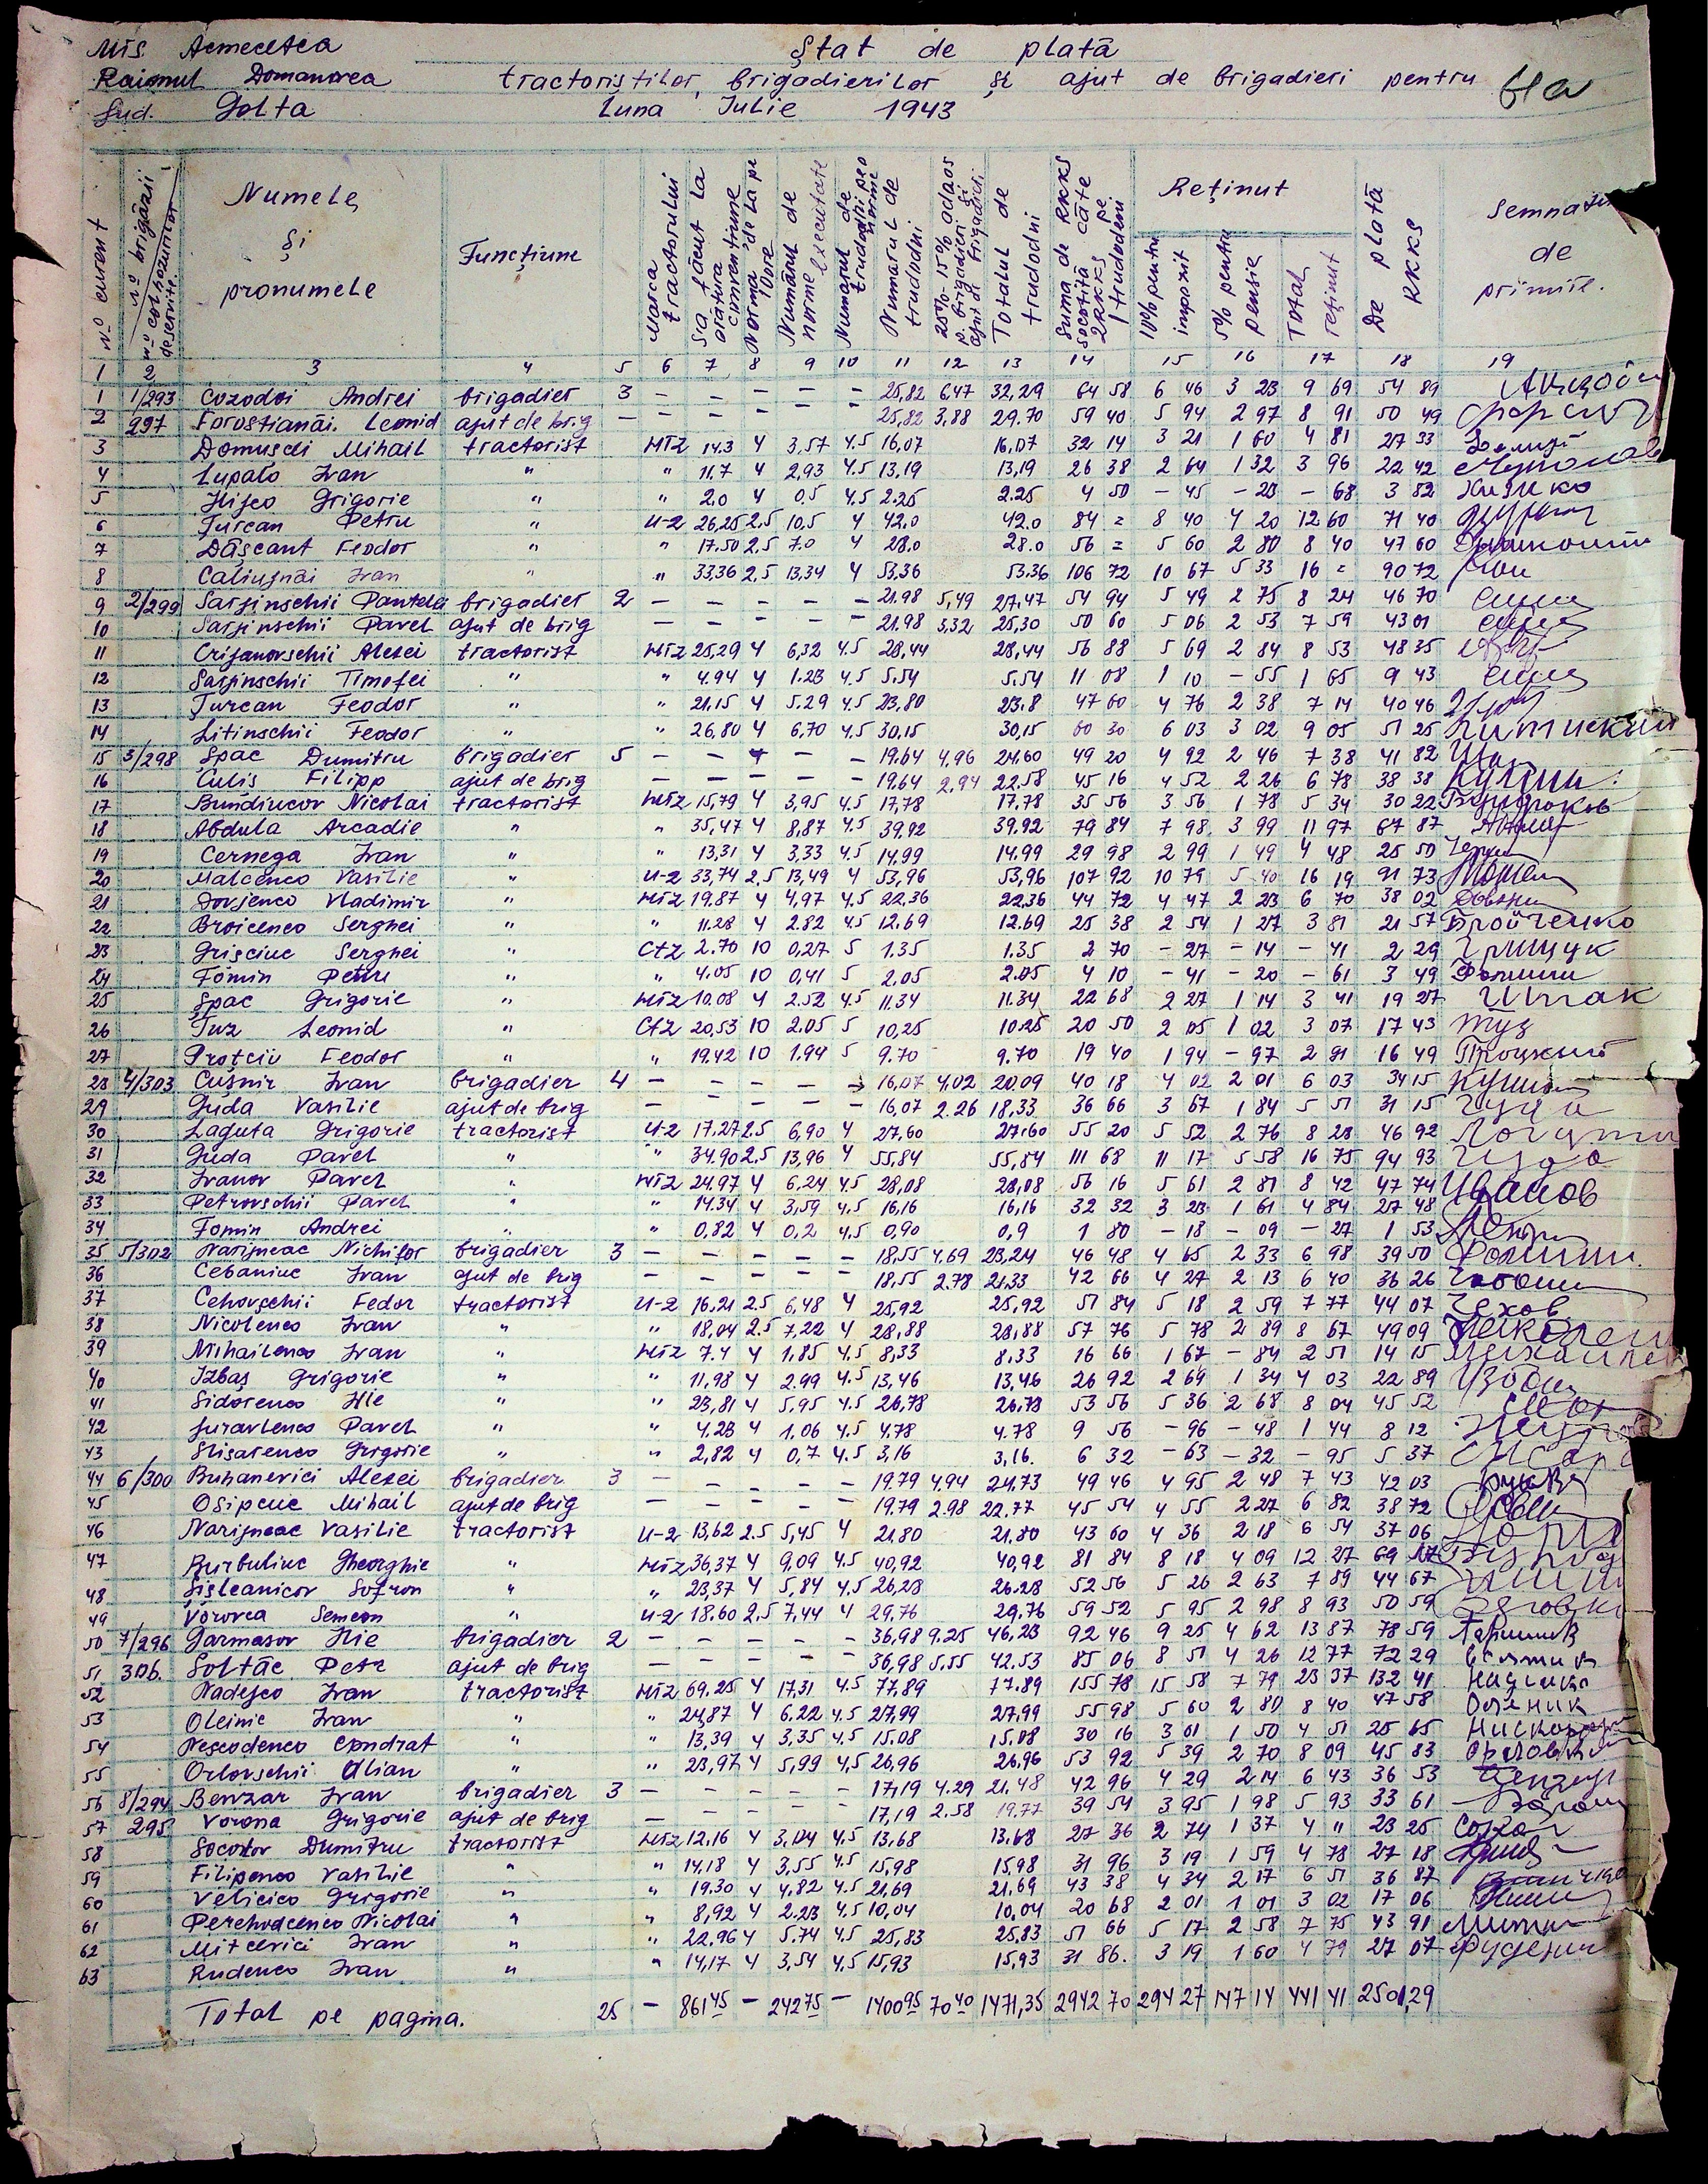 Mts. Acmecetca Ștat de plată
Raionul Domanovca tractoriștilor, brigadierilor și ajut de brigadieri pentru
Jud. Golta Luna Iulie 1943
№ curent
№ brigăzii
№ colhozurilor deservite.
Numele și pronumele
Funcțiune
Marca tractorului
S'a făcut la arătura
Norma de la pe 10 ore
Numărul de norme executate
Numărul de trudodni pe o normă
Numărul de trudodni
25% - 15% adaos p. brigadieri și ajut de brigadieri
Totalul de trudodni
Suma de RKKS socotită câte 2 RKKS pe 1 trudodeni
Reținut
10% pentru impozit
5% pentru pensie
Total reținut
De plată RKKS
Semnatura de primire.
1 2 3 4 5 6 7 8 9 10 11 12 13 14 15 16 17 18 19
1 1/293 Cozodoi Andrei brigadier 3 - - - - 25,82 6,47 32,29 64 58 6 46 3 23 9 69 54 89
2 297 Forostianăi. Leonid ajut de brig - - - - - 25,82 3,88 29.70 59 40 5 94 2 97 8 91 50 49
3 Domuscii Mihail tractorist HTZ 14.3 4 3,57 4.5 16,07 16,07 32 14 3 21 1 60 4 81 27 33
4 Lupalo Ivan " " 11.7 4 2,93 4.5 13,19 13,19 26 38 2 64 1 32 3 96 22 42
5 Hișco Grigorie " " 2.0 4 0,5 4.5 2.25 2.25 4 50 - 45 - 23 - 68 3 82 Хижко
6 Țurcan Petru " U-2 26,25 2,5 10,5 4 42.0 42.0 84 = 8 40 4 20 12 60 71 40
7 Dășcant Feodor " " 17.50 2,5 7.0 4 28.0 28.0 56 = 5 60 2 80 8 40 47 60
8 Caliujnăi Ivan " " 33,36 2,5 13,34 4 53,36 53.36 106 72 10 67 5 33 16 = 90 72
9 2/299 Sarjinschii Pantela brigadier 2 - - - - - 21.98 5,49 27.47 54 94 5 49 2 75 8 24 46 70
10 Sarjinschii Pavel ajut de brig - - - - - 21.98 3,32 25,30 50 60 5 06 2 53 7 59 43 01
11 Crijanovschii Alexei tractorist HTZ 25,29 4 6,32 4.5 28,44 28,44 56 88 5 69 2 84 8 53 48 35
12 Sarjinschii Timofei " " 4.94 4 1.23 4.5 5.54 5.54 11 08 1 10 - 55 1 65 9 43
13 Țurcan Feodor " " 21,15 4 5.29 4.5 23,80 23.8 47 60 4 76 2 38 7 14 40 46
14 Litinschii Feodor " " 26,80 4 6,70 4.5 30,15 30,15 60 30 6 03 3 02 9 05 51 25
15 3/298 Șpac Dumitru brigadier 5 - - - - 19.64 4,96 24.60 49 20 4 92 2 46 7 38 41 82
16 Culis Filipp ajut de brig - - - - 19.64 2,94 22.58 45 16 4 52 2 26 6 78 38 38
17 Bundiucov Nicolai tractorist HTZ 15,79 4 3,95 4.5 17,78 17,78 35 56 3 56 1 78 5 34 30 22
18 Abdula Arcadie " " 35,47 4 8,87 4.5 39.92 39.92 79 84 7 98 3 99 11 97 67 87
19 Cernega Ivan " " 13,31 4 3,33 4.5 14,99 14.99 29 98 2 99 1 49 4 48 25 50
20 Malcenco Vasilie " U-2 33,74 2.5 13,49 4 53,96 53,96 107 92 10 79 5 40 16 19 91 73
21 Dovjenco Vladimir " HTZ 19,87 4 4,97 4.5 22,36 22.36 44 72 4 47 2 23 6 70 38 02
22 Broicenco Serghei " " 11.28 4 2.82 4.5 12.69 12.69 25 38 2 54 1 27 3 81 21 57 Бройченко
23 Grisciuc Serghei " CTZ 2.70 10 0,27 5 1.35 1.35 2 70 - 27 - 14 - 41 2 29 Грищук
24 Fomin Petru " " 4.05 10 0,41 5 2,05 2.05 4 10 - 41 - 20 - 61 3 49
25 Șpac Grigorie " HTZ 10.08 4 2.52 4.5 11.34 11.34 22 68 2 27 1 14 3 41 19 27 Шпак
26 Tuz Leonid " CTZ 20,53 10 2.05 5 10,25 10.25 20 50 2 05 1 02 3 07 17 43 Туз
27 Proțciu Feodor " " 19.42 10 1.94 5 9.70 9.70 19 40 1 94 - 97 2 91 16 49
28 4/303 Cușnir Ivan brigadier 4 - - - - - 16,07 4.02 20.09 40 18 4 02 2 01 6 03 34 15
29 Guda Vasilie ajut de brig - - - - - 16,07 2.26 18,33 36 66 3 67 1 84 5 51 31 15 Гуда
30 Laguta Grigorie tractorist U-2 17.27 2.5 6,90 4 27,60 27,60 55 20 5 52 2 76 8 28 46 92
31 Guda Pavel " " 34.90 2.5 13,96 4 55,84 55,84 111 68 11 17 5 58 16 75 94 93 Гуда
32 Ivanov Pavel " HTZ 24,97 4 6,24 4.5 28,08 28,08 56 16 5 61 2 81 8 42 47 74 Иванов
33 Petrovschii Pavel " " 14.34 4 3,59 4.5 16,16 16,16 32 32 3 23 1 61 4 84 27 48
34 Fomin Andrei " " 0,82 4 0,2 4,5 0,90 0,9 1 80 - 18 - 09 - 27 1 53
35 5/302 Narijneac Nichifor brigadier 3 - - - - - 18,55 4.69 23,24 46 48 4 65 2 33 6 98 39 50
36 Cebaniuc Ivan ajut de brig - - - - - 18.55 2.78 21.33 42 66 4 27 2 13 6 40 36 26
37 Cehovschii Fedor tractorist U-2 16.21 2.5 6,48 4 25,92 25,92 51 84 5 18 2 59 7 77 44 07
38 Nicolenco Ivan " " 18,04 2.5 7,22 4 28,88 28,88 57 76 5 78 2 89 8 67 49 09
39 Mihailenco Ivan " HTZ 7.4 4 1,85 4.5 8,33 8.33 16 66 1 67 - 84 2 51 14 15
40 Izbaș Grigorie " " 11,98 4 2.99 4.5 13,46 13,46 26 92 2 69 1 34 4 03 22 89
41 Sidorenco Ilie " " 23,81 4 5,95 4.5 26,78 26.78 53 56 5 36 2 68 8 04 45 52
42 Juravlenco Pavel " " 4.23 4 1,06 4.5 4.78 4.78 9 56 - 96 - 48 1 44 8 12
43 Slisarenco Grigorie " " 2,82 4 0,7 4.5 3,16 3,16. 6 32 - 63 - 32 - 95 5 37
44 6/300 Buhanevici Alexei brigadier 3 - - - - - 19.79 4,94 24.73 49 46 4 95 2 48 7 43 42 03
45 Osipciuc Mihail ajut de brig - - - - - 19.79 2.98 22.77 45 54 4 55 2 27 6 82 38 72
46 Narijneac Vasilie tractorist U-2 13,62 2.5 5,45 4 21.80 21.80 43 60 4 36 2 18 6 54 37 06
47 Burbuliuc Gheorghie " HTZ 36,37 4 9,09 4.5 40,92 40,92 81 84 8 18 4 09 12 27 69 57
48 Șișleanicov Sofron " " 23,37 4 5,84 4,5 26,28 26.28 52 56 5 26 2 63 7 89 44 67
49 Vorovca Semeon " U-2 18.60 2,5 7,44 4 29,76 29,76 59 52 5 95 2 98 8 93 50 59
50 7/296 Garmasov Ilie brigadier 2 - - - - - 36,98 9.25 46,23 92 46 9 25 4 62 13 87 78 59
51 306. Șoltăc Petr ajut de brig - - - - - 36,98 5,55 42.53 85 06 8 51 4 26 12 77 72 29
52 Nadejco Ivan tractorist HTZ 69.25 4 17,31 4.5 77,89 77.89 155 78 15 58 7 79 23 37 132 41
53 Oleinic Ivan " " 24,87 4 6.22 4.5 27,99 27,99 55 98 5 60 2 80 8 40 47 58
54 Nescodenco Condrat " " 13,39 4 3,35 4,5 15.08 15.08 30 16 3 01 1 50 4 51 25 65
55 Orlovschii Ulian " " 23,97 4 5,99 4,5 26,96 26,96 53 92 5 39 2 70 8 09 45 83
56 8/294 Benzar Ivan brigadier 3 - - - - - 17,19 4.29 21.48 42 96 4 29 2 14 6 43 36 53
57 295 Vorona Grigorie ajut de brig - - - - - 17,19 2.58 19.77 39 54 3 95 1 98 5 93 33 61
58 Socolov Dumitru tractorist HTZ 12.16 4 3,04 4,5 13,68 13.68 27 36 2 74 1 37 4 11 23 25
59 Filipenco Vasilie " " 14,18 4 3,55 4.5 15,98 15,98 31 96 3 19 1 59 4 78 27 18
60 Velicico Grigorie " " 19.30 4 4,82 4.5 21,69 21,69 43 38 4 34 2 17 6 51 36 87
61 Perehodcenco Nicolai " " 8,92 4 2.23 4,5 10,04 10,04 20 68 2 01 1 01 3 02 17 06
62 Mitcevici Ivan " " 22.96 4 5.74 4,5 25,83 25,83 51 66 5 17 2 58 7 75 43 91
63 Rudenco Ivan " " 14,17 4 3,54 4,5 15,93 15,93 31 86. 3 19 1 60 4 79 27 07
Total pe pagina. 25 - 861 45 - 242 75 - 1400 95 70 40 1471,35 2942 70 294 27 147 14 441 41 2501,29